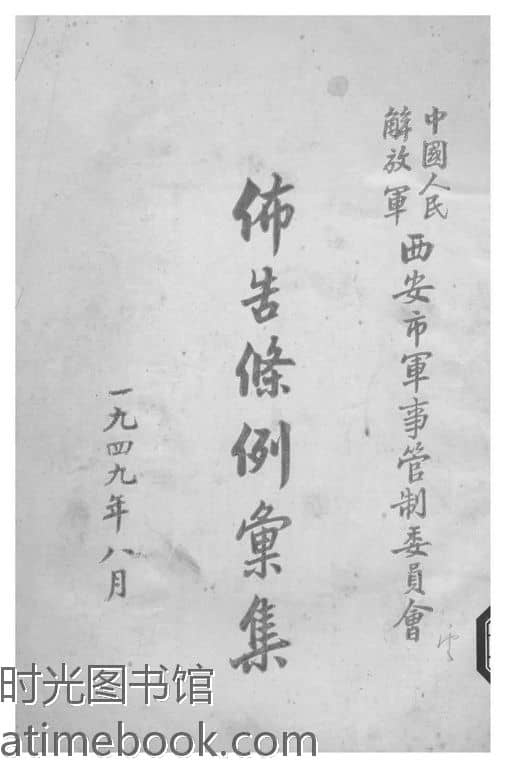 中國人民
解放軍
西安市軍事管制委員會
佈告條例彙集
一九四九年八月
时光图书馆
atimebook.com